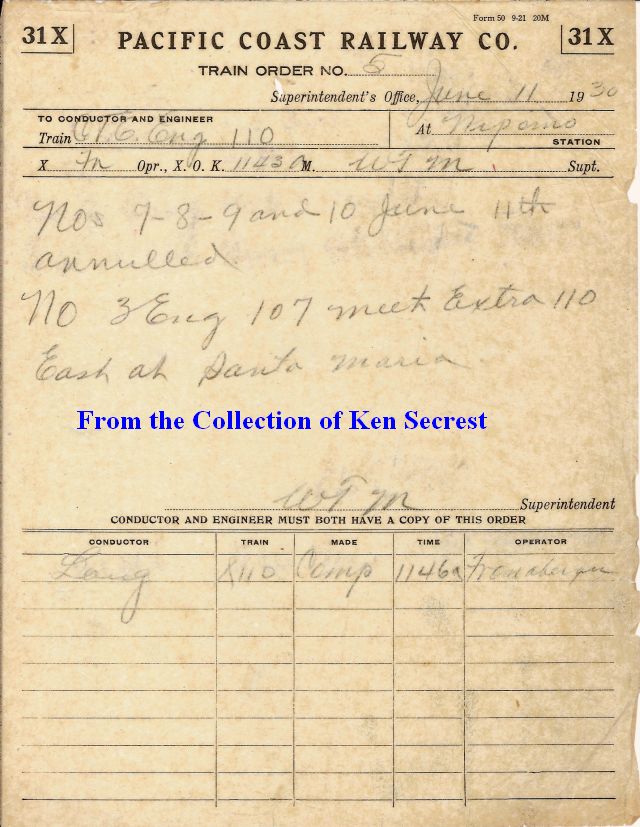 Form 50 9-21 20M
31 X PACIFIC COAST RAILWAY CO. 31 X
TRAIN ORDER NO. 5
Superintendent's Office, June 11 1930
TO CONDUCTOR AND ENGINEER
Train C&E Eng 110 At Nipomo
STATION
X Fn Opr., X. O. K. 1143 A M. WTM Supt.
Nos 7-8-9 and 10 June 11th
annulled.
No 3 Eng 107 meet Extra 110
East at Santa Maria
From the Collection of Ken Secrest
WTM Superintendent
CONDUCTOR AND ENGINEER MUST BOTH HAVE A COPY OF THIS ORDER
CONDUCTOR TRAIN MADE TIME OPERATOR
X110 Comp 1146a